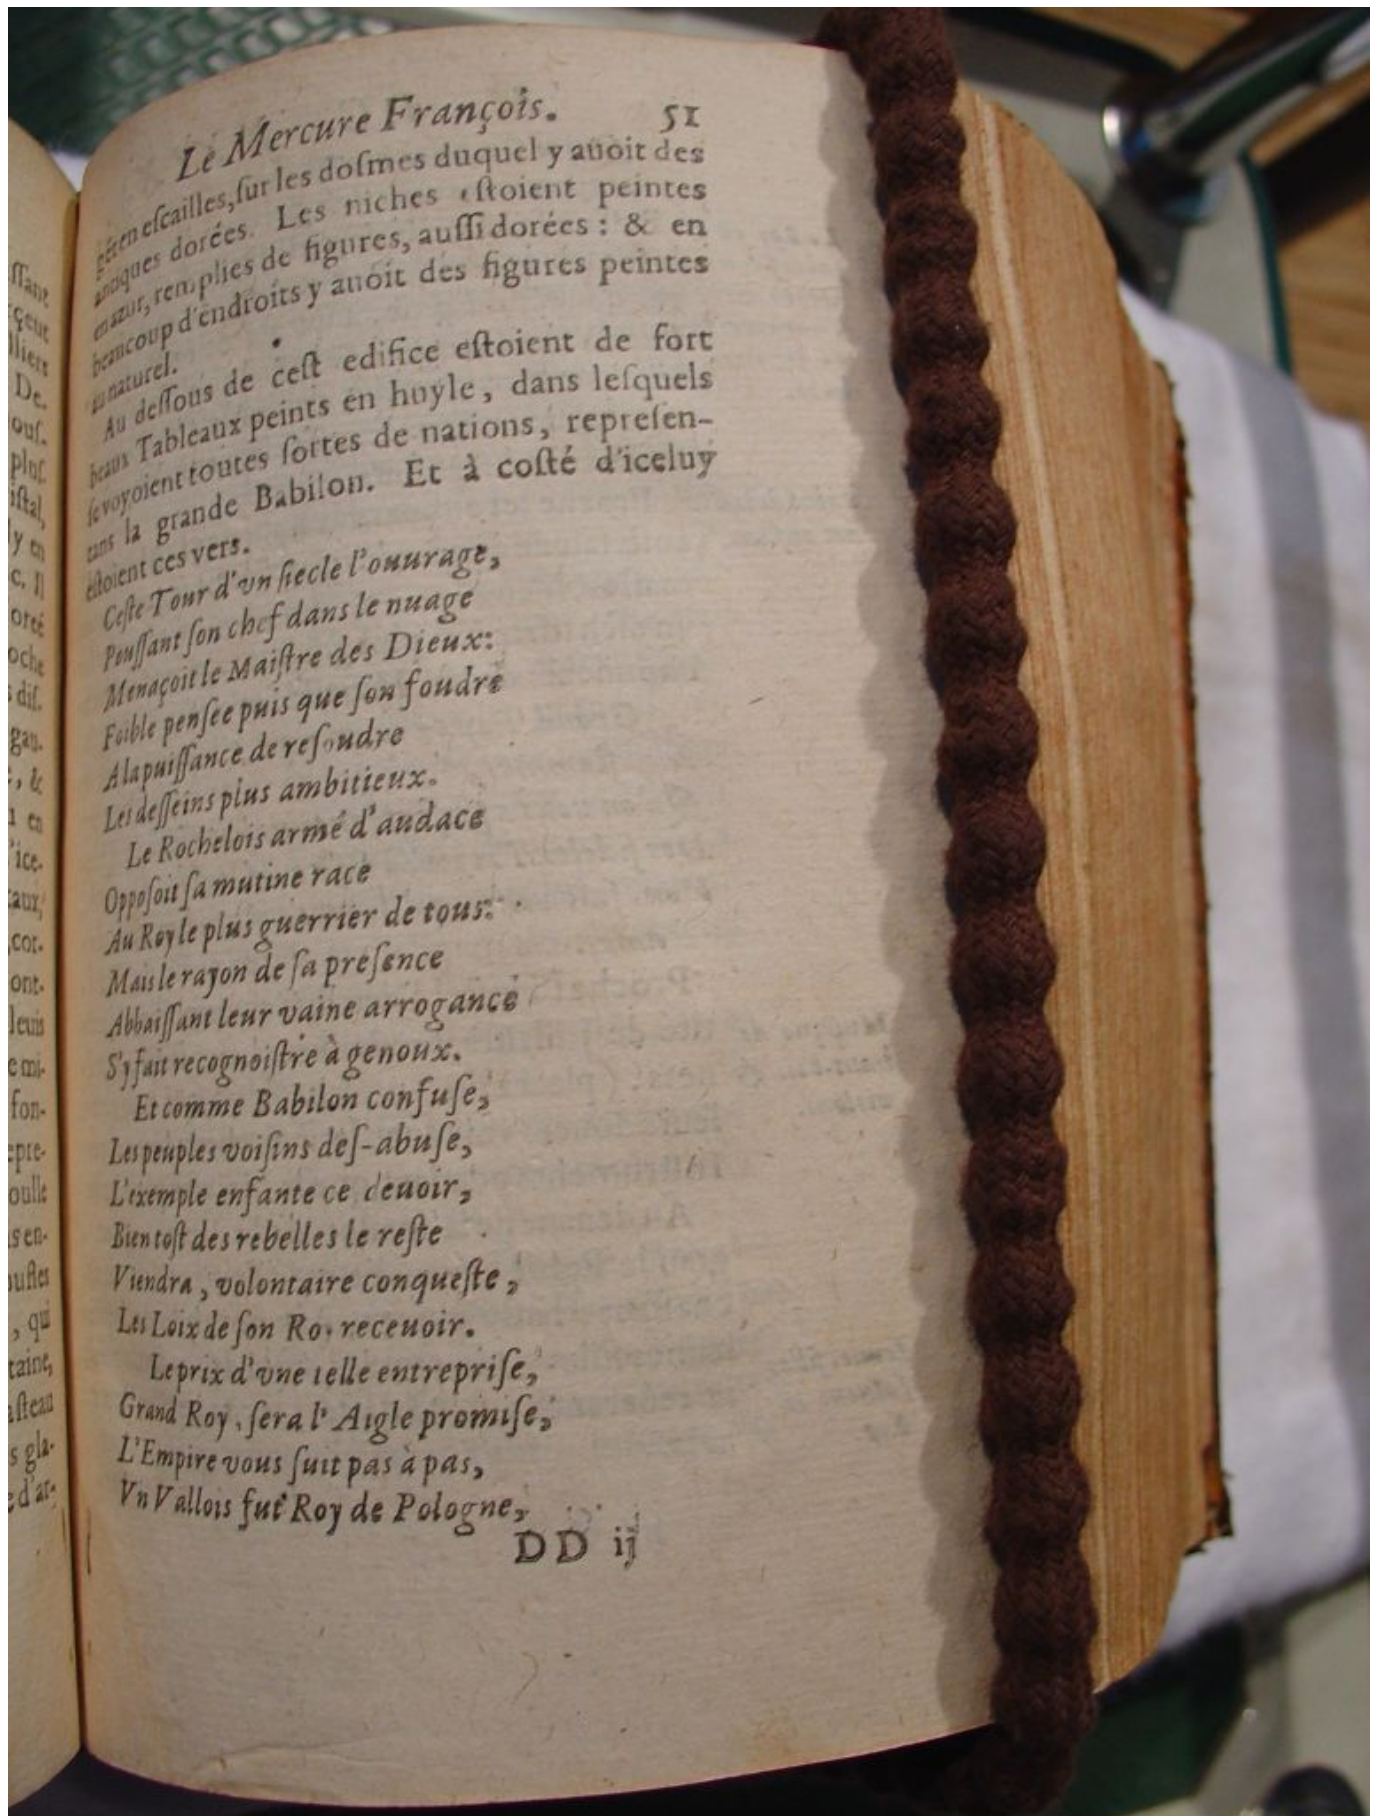 ſſant
çeut
lliers
De-
ouſ-
pluſ
iſtal,
y en
c. Il
orté
oche
diſ-
gau-
, &
en
ice-
aux,
cor-
ont-
leuis
e mi-
fon-
epre-
oulle
s en-
ouſtes
, qui
taine,
aſteau
s gla-
d'ar-
Le Mercure François. 51
gée en eſcailles, ſur les doſmes duquel y auoit des
antiques dorées. Les niches eſtoient peintes
en azur, remplies de figures, auſſi dorées : & en
beaucoup d'endroits y auoit des figures peintes
au naturel.
Au deſſous de ceſt edifice eſtoient de fort
beaux Tableaux peints en huyle, dans leſquels
ſe voyoient toutes ſortes de nations, repreſen-
tans la grande Babilon. Et à coſté d'iceluy
eſtoient ces vers.
Ceſte Tour d'vn ſiecle l'ouurage,
Pouſſant ſon chef dans le nuage
Menaçoit le Maiſtre des Dieux:
Foible penſee puis que ſon foudre
A la puiſſance de reſoudre
Les deſſeins plus ambitieux.
Le Rochelois armé d'audace
Oppoſoit ſa mutine race
Au Roy le plus guerrier de tous:
Mais le rayon de ſa preſence
Abbaiſſant leur vaine arrogance
S'y fait recognoiſtre à genoux.
Et comme Babilon confuſe,
Les peuples voiſins deſ-abuſe,
L'exemple enfante ce deuoir,
Bien toſt des rebelles le reſte
Viendra, volontaire conqueſte,
Les Loix de ſon Roy receuoir.
Le prix d'vne telle entrepriſe,
Grand Roy, ſera l'Aigle promiſe,
L'Empire vous ſuit pas à pas,
Vn Vallois fut Roy de Pologne,
DD ij